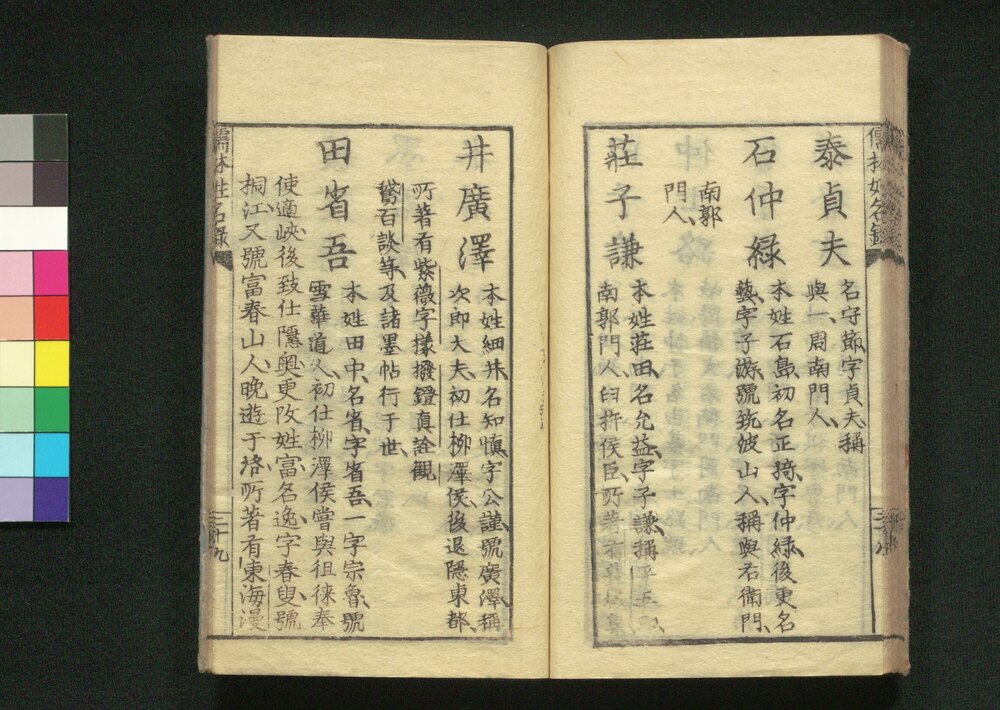 泰貞夫
名守節字貞夫稱
與一周南門人
石仲緑
本姓石島初名正猗字仲緑後更名
藝字子游號筑波山人稱與右衛門
南郭
門人
莊子謙
本姓莊田名允益字子謙稱
南郭門人臼杵侯臣所著
井廣澤
本姓細井名知慎字公謹號廣澤稱
次郎大夫初仕柳澤侯後退隱東都
所著有紫薇字樣撥鐙真詮觀
鵞百談等及諸墨帖行于世
田省吾
本姓田中名省字省吾一字宗魯號
雪華道人初仕柳澤侯嘗與徂徠奉
使適峽後致仕隱奥更改姓富名逸字春叟號
桐江又號富春山人晚遊于洛所著有東海漫
儒林姓名録
二十九